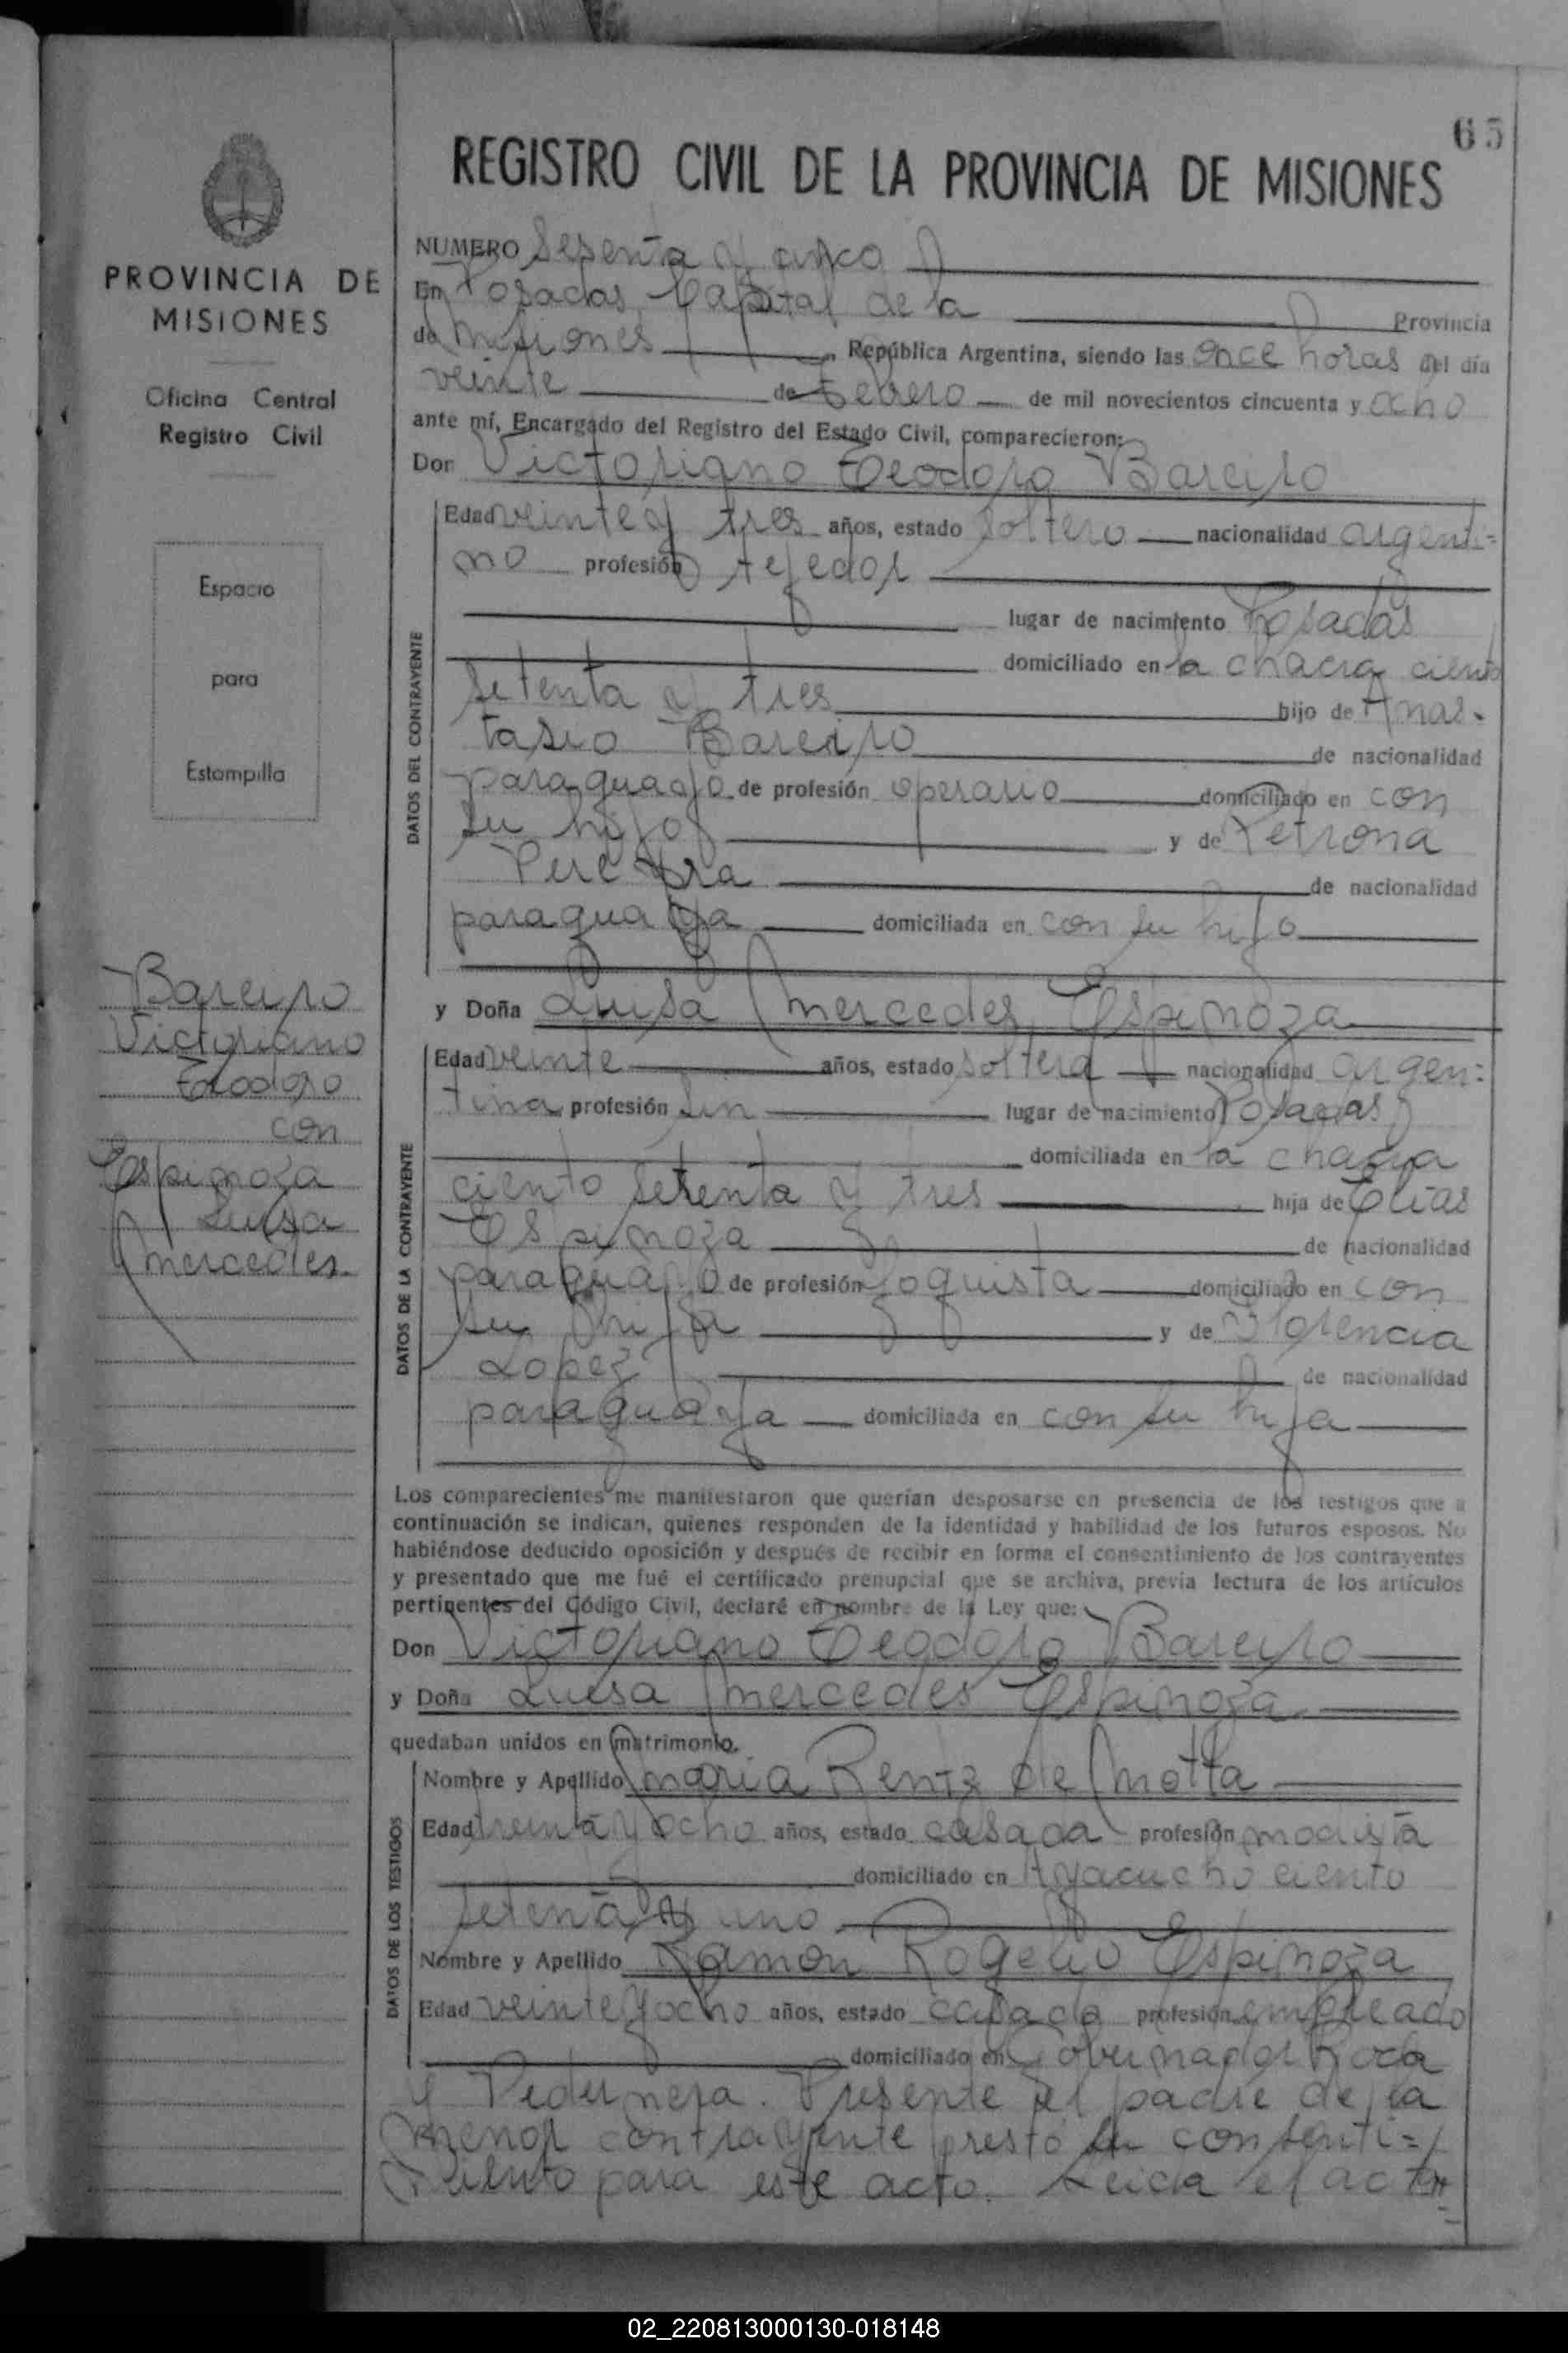 65
REGISTRO CIVIL DE LA PROVINCIA DE MISIONES
PROVINCIA DE
MISIONES
Oficina Central
Registro Civil
Espacio
para
Estampilla
Bareiro
Victoriano
Teodoro
con
Espinoza
Luisa
Mercedes
NUMERO Sesenta y cinco
En Posadas, Capital de la Provincia
de Misiones, República Argentina, siendo las once horas del día
veinte de Febrero de mil novecientos cincuenta y ocho
ante mí, Encargado del Registro del Estado Civil, comparecieron:
Don Victoriano Teodoro Bareiro
DATOS DEL CONTRAYENTE
Edad veinte y tres años, estado soltero nacionalidad argenti=
no profesión tejedor
lugar de nacimiento Posadas
domiciliado en la chacra ciento
setenta y tres hijo de Anas-
tasio Bareiro de nacionalidad
paraguayo de profesión operario domiciliado en con
su hijo y de Petrona
Pereyra de nacionalidad
paraguaya domiciliada en con su hijo
y Doña Luisa Mercedes Espinoza
DATOS DE LA CONTRAYENTE
Edad veinte años, estado soltera nacionalidad argen=
tina profesión sin lugar de nacimiento Posadas
domiciliada en la chacra
ciento setenta y tres hija de Elías
Espinoza de nacionalidad
paraguayo de profesión foguista domiciliado en con
su hija y de Florencia
Lopez de nacionalidad
paraguaya domiciliada en con su hija
Los comparecientes me manifestaron que querían desposarse en presencia de los testigos que a
continuación se indican, quienes responden de la identidad y habilidad de los futuros esposos. No
habiéndose deducido oposición y después de recibir en forma el consentimiento de los contrayentes
y presentado que me fué el certificado prenupcial que se archiva, previa lectura de los artículos
pertinentes del Código Civil, declaré en nombre de la Ley que:
Don Victoriano Teodoro Bareiro
y Doña Luisa Mercedes Espinoza
quedaban unidos en matrimonio.
DATOS DE LOS TESTIGOS
Nombre y Apellido Maria Rentz de Motta
Edad treinta y ocho años, estado casada profesión modista
domiciliado en Ayacucho ciento
setenta y uno
Nombre y Apellido Ramon Rogelio Espinoza
Edad veinte y ocho años, estado casado profesión empleado
domiciliado en Gobernador Roca
y Pedernera. Presente el padre de la
menor contrayente prestó su consenti=
miento para este acto. Leida el acta
02_220813000130-018148